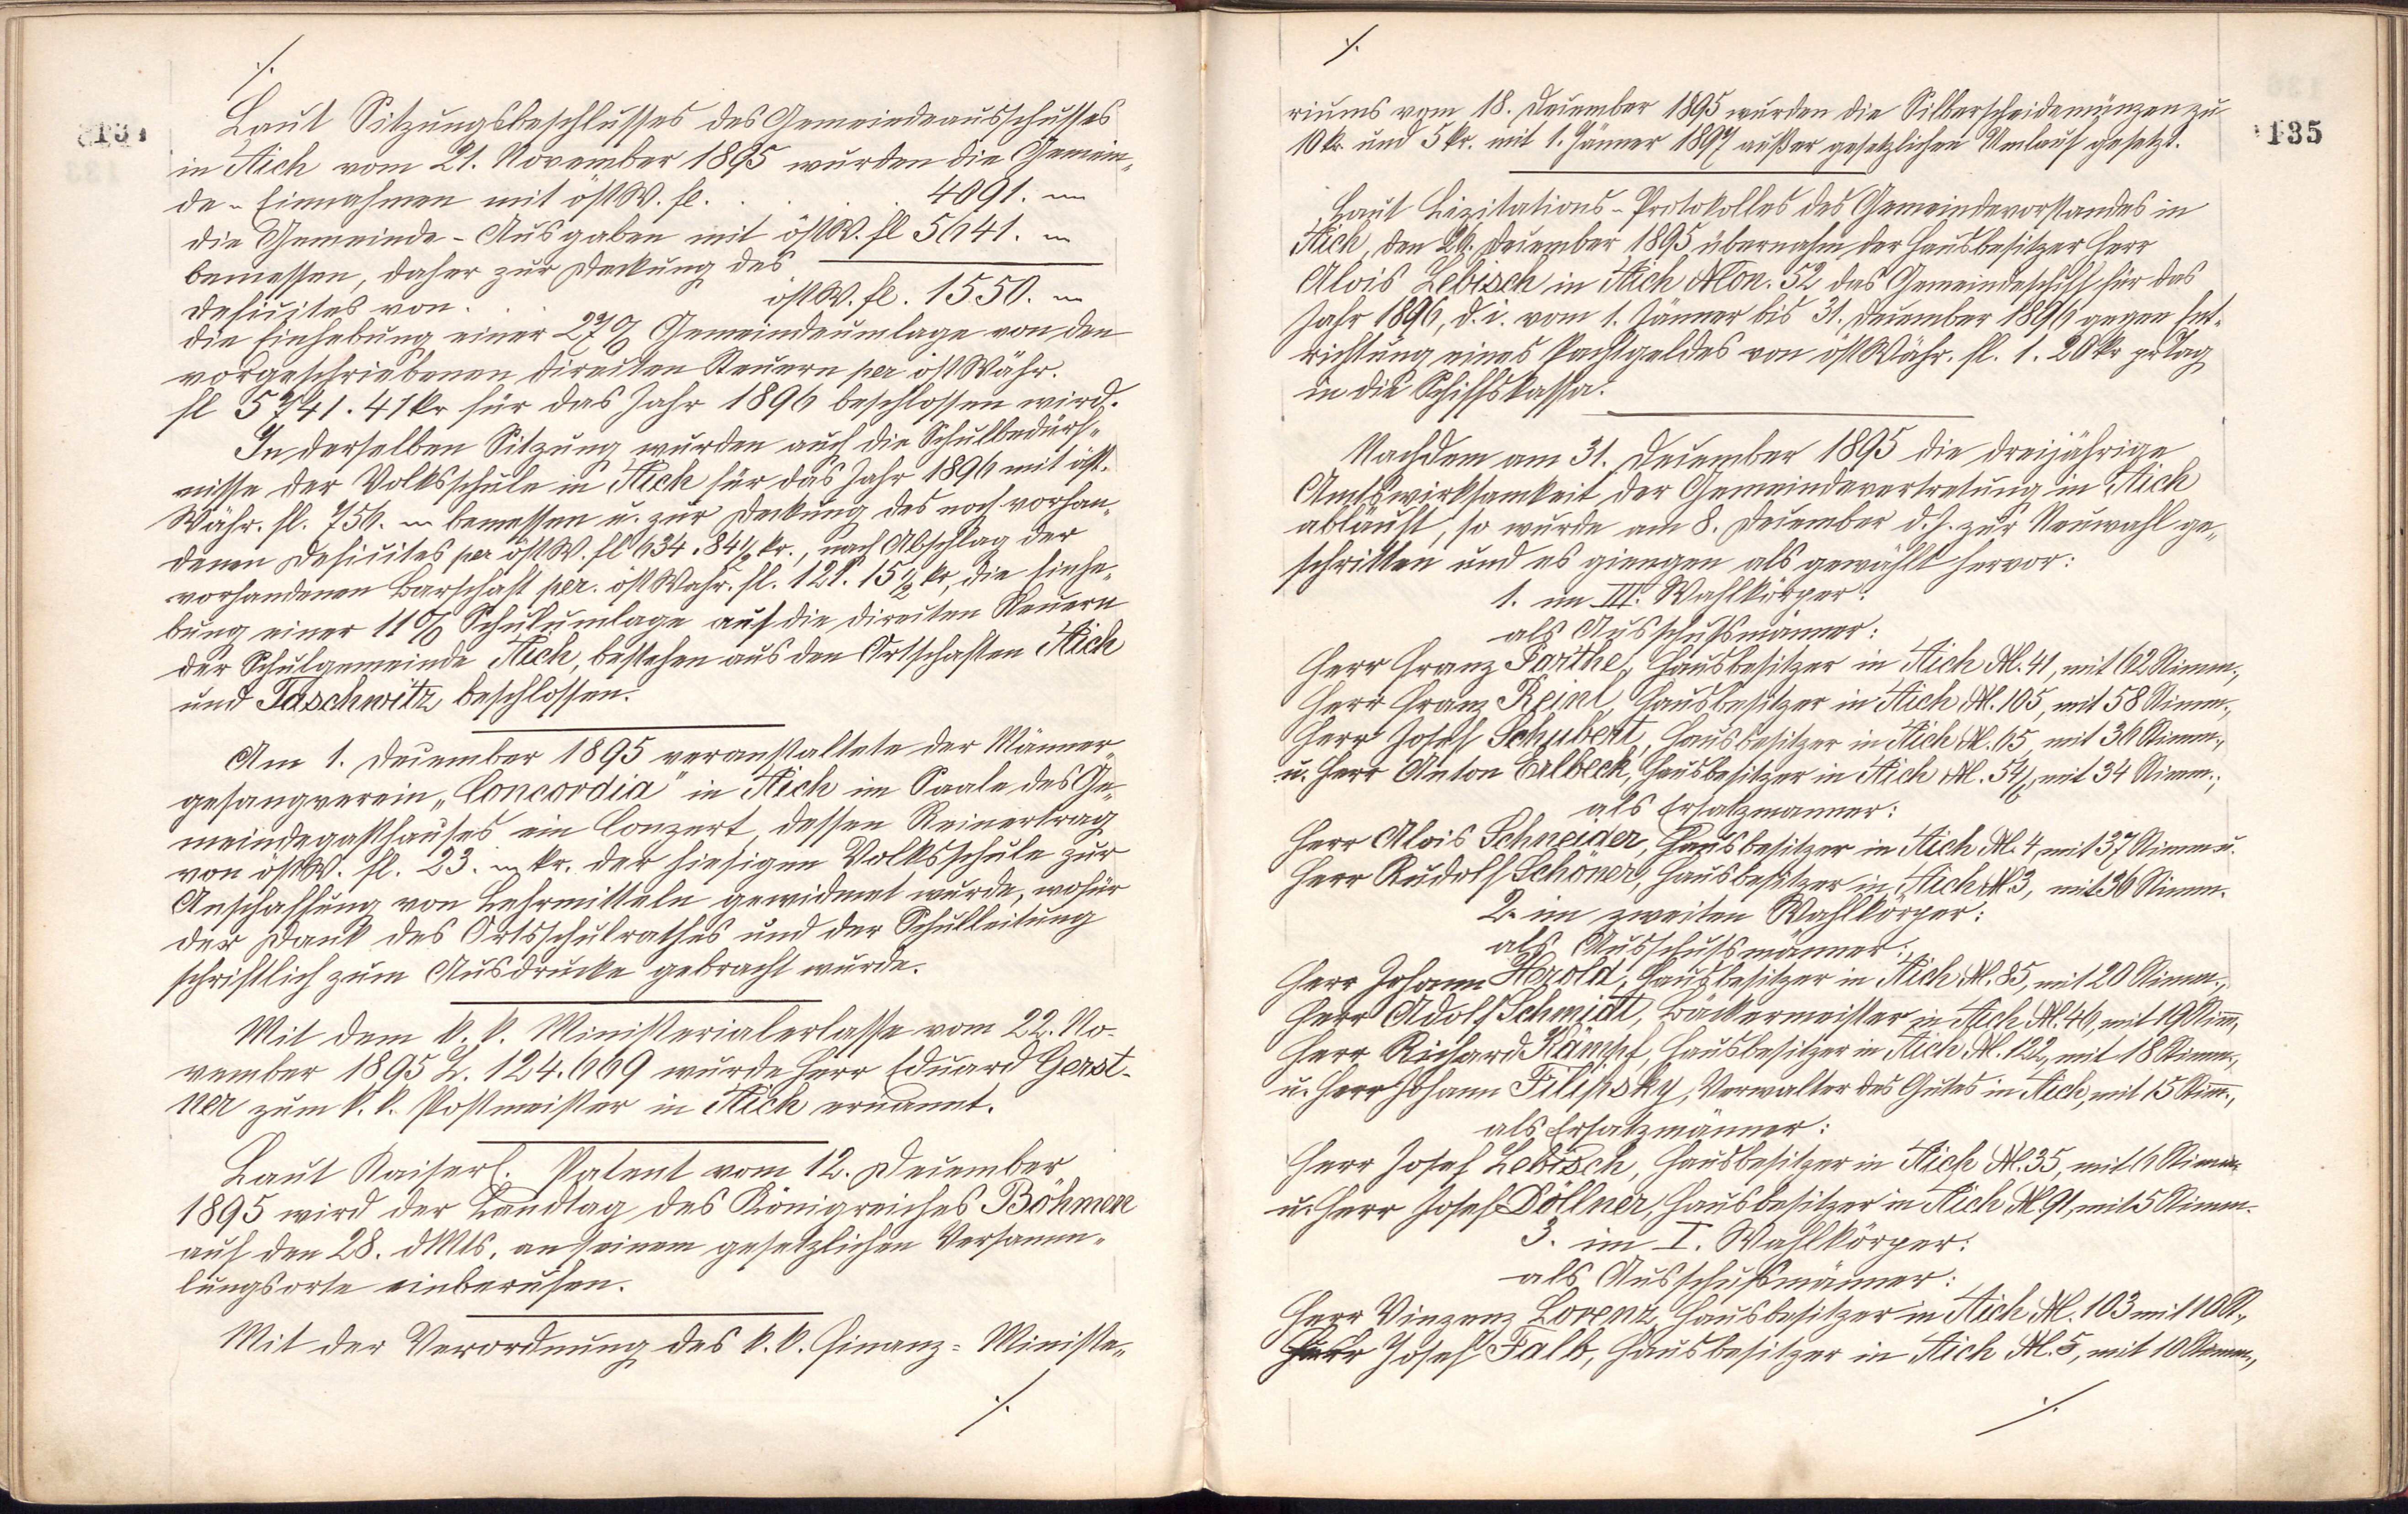 ·/.
134
Laut Sitzungsbeschlusses des Gemeindeausschusses
in Aich vom 21. November 1895 wurden die Gemein-
de-Einnahmen mit öst W. fl. . . . . 4091. –
die Gemeinde-Ausgaben mit öst W. fl 5641. –
bemessen, daher zur Deckung des
Deficites von . . . öst W. fl. 1550. –
die Einhebung einer 27% Gemeindeumlage von den
vorgeschriebenen direkten Steuern per öst Währ.
fl 5741. 41 kr für das Jahr 1896 beschlossen wird.
In derselben Sitzung wurden auch die Schulbedürf-
nisse der Volksschule in Aich für das Jahr 1896 mit öst.
Währ. fl. 756. – bemessen u. zur Deckung des noch vorhan-
denen Deficites per öst W. fl 634. 84½ kr., nach Abschlag der
vorhandenen Barschaft per. öst Währ. fl. 121. 15½ kr, die Einhe-
bung einer 11% Schulumlage auf die direkten Steuern
der Schulgemeinde Aich, bestehen aus den Ortschaften Aich
und Taschwitz beschlossen.
Am 1. December 1895 veranstaltete der Männer-
gesangverein „Concordia" in Aich im Saale des Ge-
meindegasthauses ein Conzert, dessen Reinertrag
von öst W. fl. 23. – kr. der hiesigen Volksschule zur
Anschaffung von Lehrmitteln gewidmet wurde, wofür
der Dank des Ortsschulrathes und der Schulleitung
schriftlich zum Ausdrucke gebracht wurde.
Mit dem k. k. Ministerialerlasse vom 22. No-
vember 1895 Z. 124.669 wurde Herr Eduard Gerst-
ner zum k. k. Postmeister in Aich ernannt.
Laut Kaiserl. Patent vom 12. December
1895 wird der Landtag des Königreiches Böhmen
auf den 28. d Mts. an seinem gesetzlichen Versamm-
lungsorte einberufen.
Mit der Verordnung des k. k. Finanz-Ministe-
·/.
·/.
135
riums vom 18. December 1895 wurden die Silberscheidemünzen zu
10 kr. und 5 kr. mit 1. Jänner 1897 außer gesetzlichen Umlauf gesetzt.
Laut Lizitations-Protokolles des Gemeindevorstandes in
Aich, den 26. December 1895 übernahm der Hausbesitzer Herr
Alois Lebisch in Aich Nro. 52 das Gemeindeschiff für das
Jahr 1896, d. i. vom 1. Jänner bis 31. December 1896 gegen Ent-
richtung eines Pachtgeldes von öst Währ. fl. 1. 20 kr pr Tag
in die Schiffskassa.
Nachdem am 31. December 1895 die dreijährige
Amtswirksamkeit der Gemeindevertretung in Aich
abläuft, so wurde am 8. December d. J. zur Neuwahl ge-
schritten und es giengen als gewählt hervor:
1. im III. Wahlkörper:
als Ausschußmänner:
Herr Franz Parthe, Hausbesitzer in Aich N. 41, mit 62 Stimm.,
Herr Franz Reinl, Hausbesitzer in Aich N. 105, mit 58 Stimm.,
Herr Josef Schubert, Hausbesitzer in Aich N. 65, mit 36 Stimm.,
u. Herr Anton Erlbeck, Hausbesitzer in Aich N. 54/, mit 34 Stimm.;
als Ersatzmanner:
Herr Alois Schneider, Hausbesitzer in Aich N. 4, mit 37 Stimm u.
Herr Rudolf Schöner, Hausbesitzer in Aich N. 3, mit 36 Stimm.
2. im zweiten Wahlkörper:
als Ausschußmänner:
Herr Johann Herold, Hausbesitzer in Aich N. 85, mit 20 Stimm.,
Herr Adolf Schmidt, Bäckermeister in Aich N. 46, mit 19 Stim.,
Herr Richard Kämpf, Hausbesitzer in Aich N. 122, mit 18 Stimm.,
u. Herr Johann Filipsky, Verwalter des Gutes in Aich, mit 15 Stim.,
als Ersatzmänner:
Herr Josef Lebisch, Hausbesitzer in Aich N. 35, mit 6 Stimm.
u. Herr Josef Döllner, Hausbesitzer in Aich N. 91, mit 5 Stimm.
3. im I. Wahlkörper:
als Ausschußmänner:
Herr Vinzenz Lorenz, Hausbesitzer in Aich N. 103 mit 10 St.,
Herr Josef Falb, Hausbesitzer in Aich N. 5, mit 10 Stimm.,
·/.